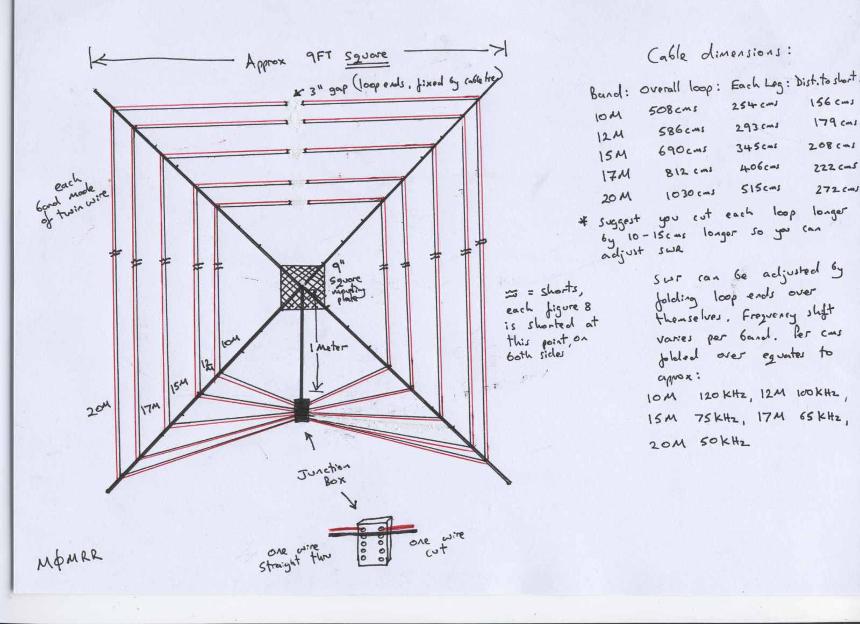 Approx 9FT Square
3" gap (loop ends, fixed by cable tree)
each
band made
of twin wire
9"
Square
mounting
plate
1 Meter
10M
12M
15M
17M
20M
≈ = shorts,
each figure 8
is shorted at
this point, on
both sides
Junction
Box
one wire
straight thru
one wire
cut
MØMRR
Cable dimensions:
Band: Overall loop: Each Leg: Dist. to short.
10M 508cms 254cms 156cms
12M 586cms 293cms 179cms
15M 690cms 345cms 208cms
17M 812cms 406cms 222cms
20M 1030cms 515cms 272cms
* Suggest you cut each loop longer
by 10-15cms longer so you can
adjust SWR
SWR can be adjusted by
folding loop ends over
themselves. Frequency shift
varies per band. Per cms
folded over equates to
aprox:
10M 120KHz, 12M 100KHz,
15M 75KHz, 17M 65KHz,
20M 50KHz